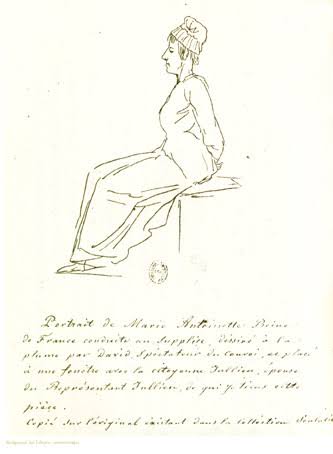 Portrait de Marie Antoinette Reine
de France conduite au Supplice, dessiné à la
plume par David, Spectateur du Convoi, et placé
à une fenêtre avec la citoyenne Jullien, épouse
du Représentant Jullien, de qui je tiens cette
pièce.
Copié sur l'original existant dans la Collection